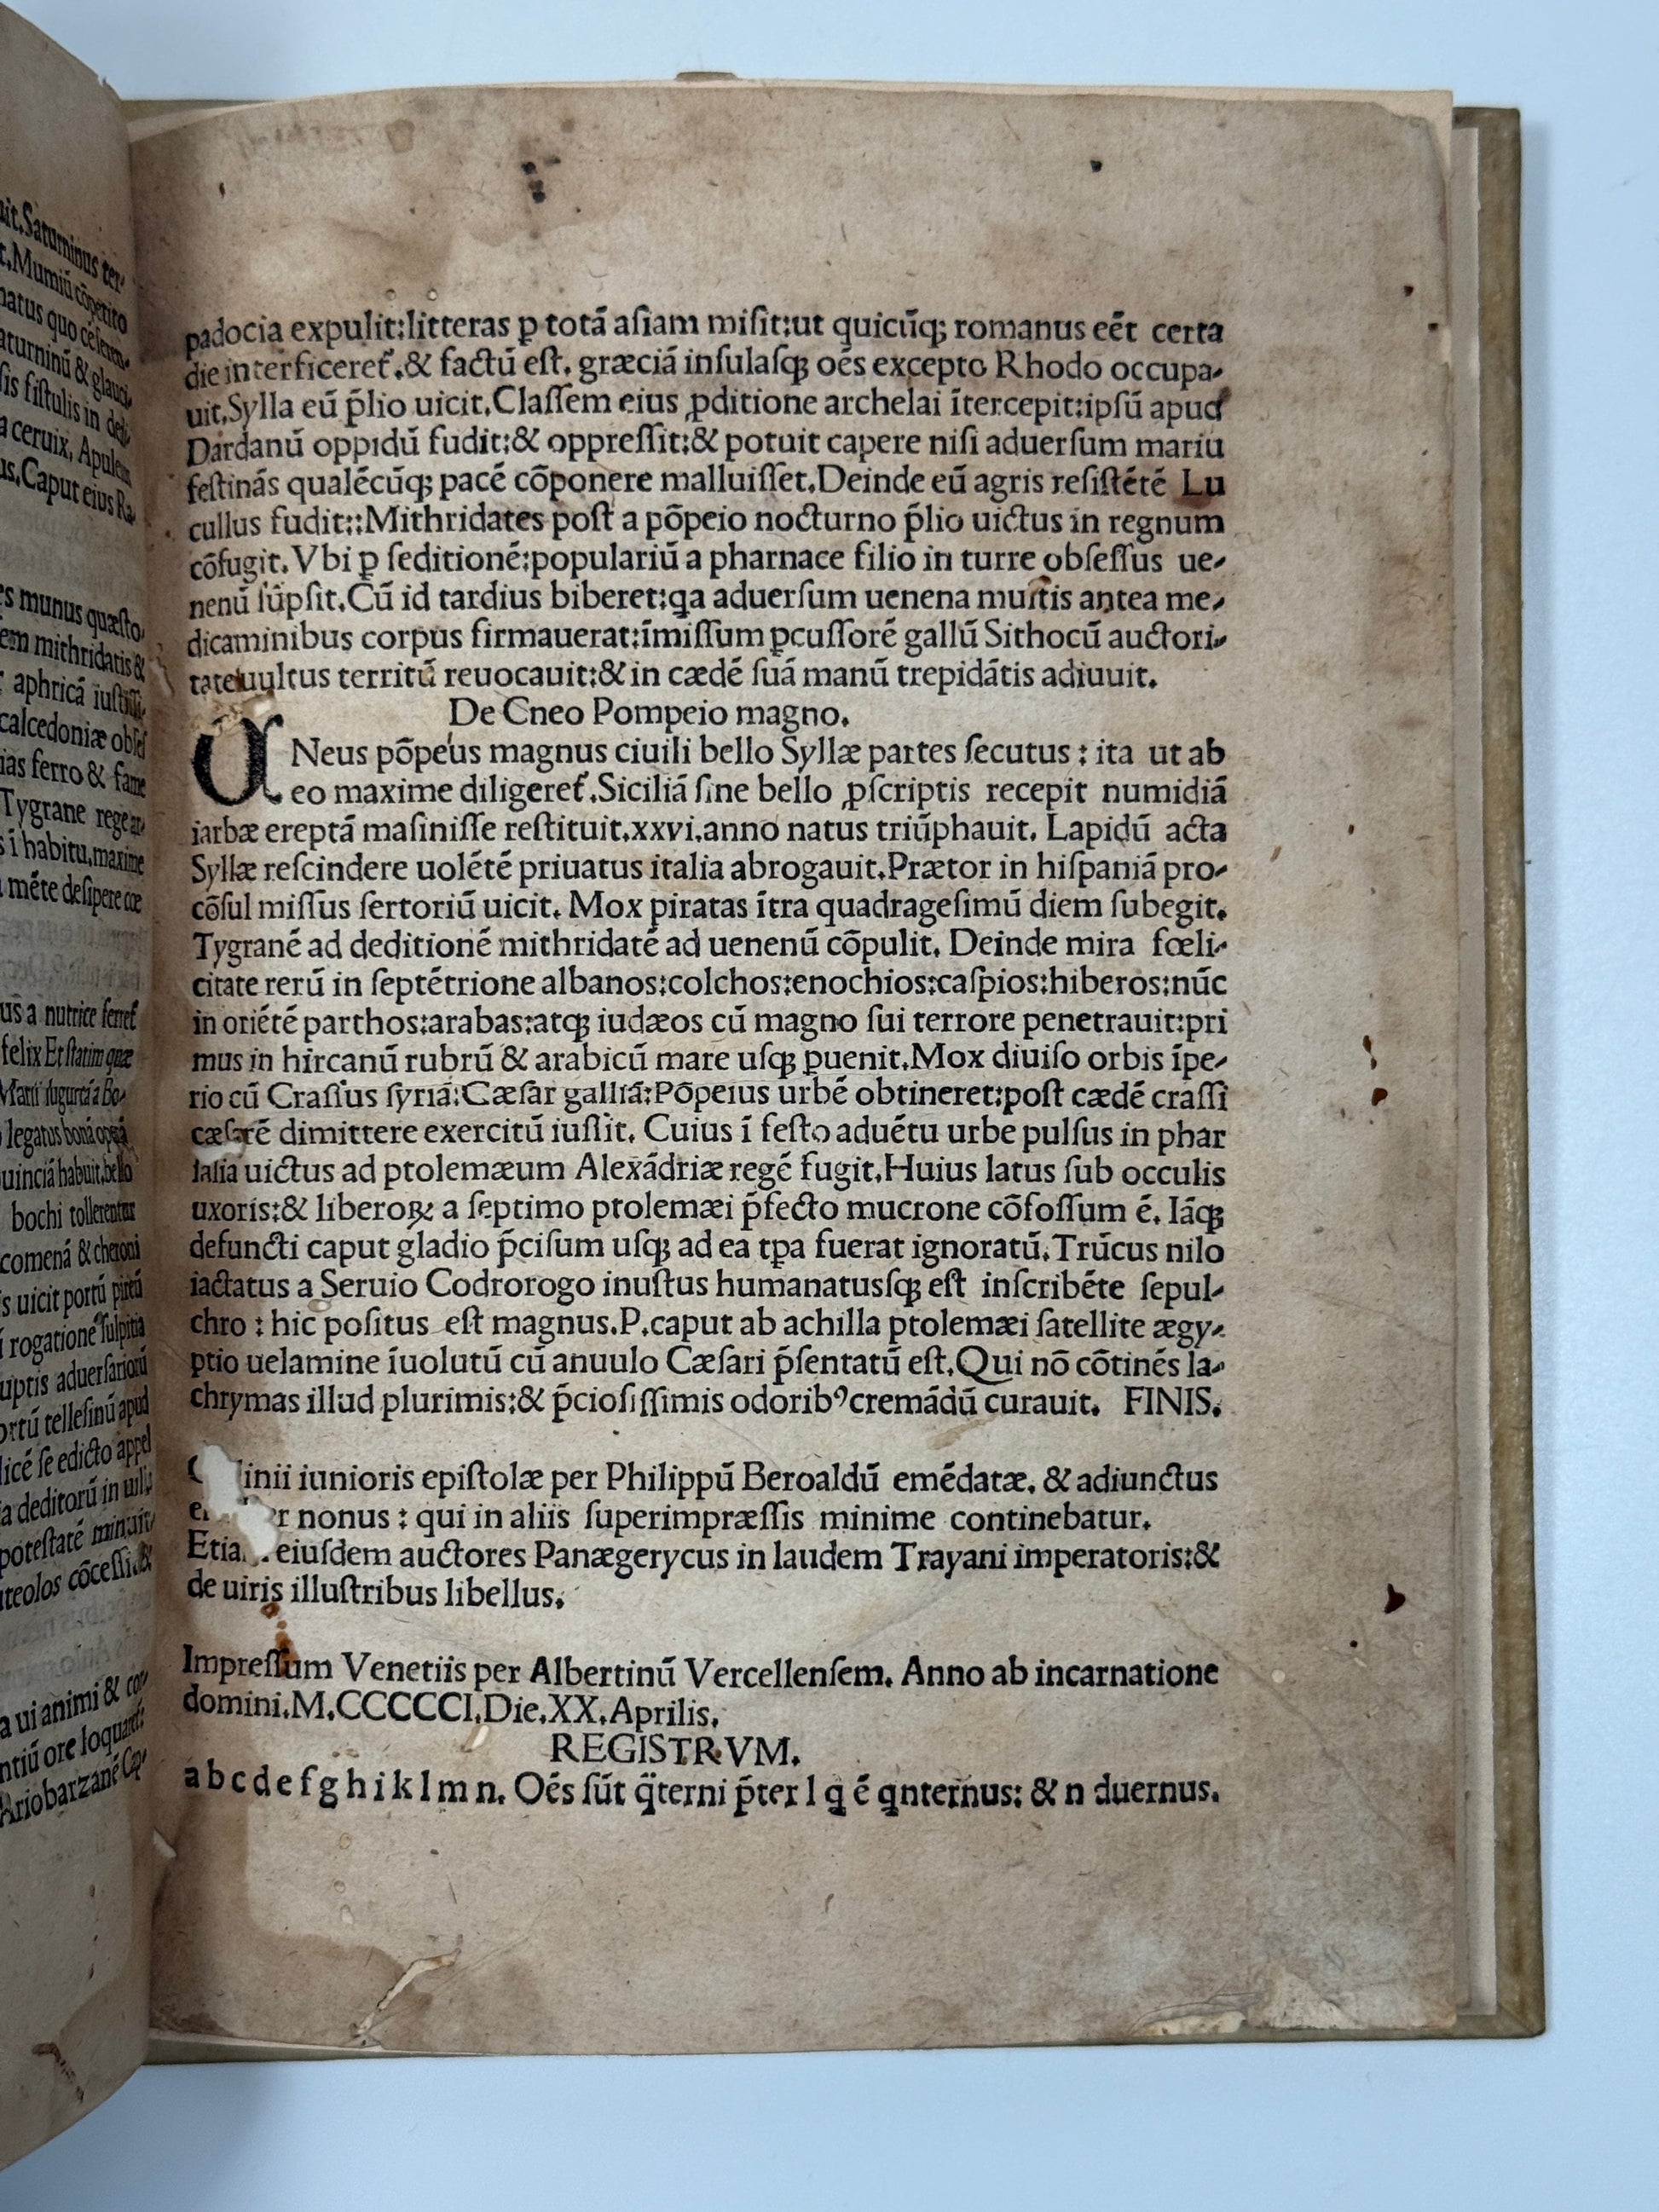 uit.Saturninus ter-
t.Mumiũ cõpetito
natus quo celerem-
aturninũ & glauci-
sis fiſtulis in dedi-
a ceruix. Apuleius
us.Caput eius Ra-
es munus quæſto-
em mithridatis &
aphricã
calcedoniæ obſeſ
ias ferro & fame
Tygrane rege ar-
s ĩ habitu.maxime
mẽte deſipere cœ
us a nutrice ferret᷑
felix Et ſtatim quæ
Marii Iugurtã a Bo-
legatus bonã operã
uinciã habuit.bello
bochi tollerentur
comenã & cheroni
s uicit portũ pireũ
rogationẽ ſulpitia
uptis aduerſariorũ
ortũ telleſinũ apud
licẽ ſe edicto appel
a deditorũ in uil-
poteſtatẽ minuit-
uteolos cõceſſit.&
a ui animi & cor-
ntiũ ore loquaret᷑:
Ariobarzanẽ Cap-
padocia expulit:litteras ꝑ totã aſiam miſit:ut quicũqꝫ romanus eẽt certa
die interficeret᷑.& factũ eſt. græciã inſulaſqꝫ oẽs excepto Rhodo occupa-
uit.Sylla eũ p̃lio uicit.Claſſem eius ꝓditione archelai ĩtercepit:ipſũ apud
Dardanũ oppidũ fudit:& oppreſſit:& potuit capere niſi aduerſum mariu
feſtinãs qualẽcũqꝫ pacẽ cõponere malluiſſet.Deinde eũ agris reſiſtẽtẽ Lu
cullus fudit::Mithridates poſt a põpeio nocturno p̃lio uictus in regnum
cõfugit.Vbi ꝑ ſeditionẽ:populariũ a pharnace filio in turre obſeſſus ue-
nenũ ſũpſit.Cũ id tardius biberet:qa aduerſum uenena multis antea me-
dicaminibus corpus firmauerat:ĩmiſſum ꝑcuſſorẽ gallũ Sithocũ auctori-
tate uultus territũ reuocauit:& in cædẽ ſuã manũ trepidãtis adiuuit.
De Cneo Pompeio magno.
CNeus põpeius magnus ciuili bello Syllæ partes ſecutus : ita ut ab
eo maxime diligeret᷑.Siciliã ſine bello ꝓſcriptis recepit numidiã
iarbæ ereptã maſiniſſe reſtituit.xxvi.anno natus triũphauit. Lapidũ acta
Syllæ reſcindere uolẽtẽ priuatus italia abrogauit.Prætor in hiſpaniã pro-
cõſul miſſus ſertoriũ uicit. Mox piratas ĩtra quadrageſimũ diem ſubegit.
Tygranẽ ad deditionẽ mithridatẽ ad uenenũ cõpulit. Deinde mira fœli-
citate rerũ in ſeptẽtrione albanos:colchos:enochios:caſpios:hiberos:nũc
in oriẽtẽ parthos:arabas:atqꝫ iudæos cũ magno ſui terrore penetrauit:pri
mus in hircanũ rubrũ & arabicũ mare uſqꝫ ꝑuenit.Mox diuiſo orbis ĩpe-
rio cũ Craſſus ſyriã:Cæſar galliã:Põpeius urbẽ obtineret:poſt cædẽ craſſi
cæſarẽ dimittere exercitũ iuſſit. Cuius ĩ feſto aduẽtu urbe pulſus in phar
ſalia uictus ad ptolemæum Alexãdriæ regẽ fugit.Huius latus ſub occulis
uxoris:& liberoꝝ a ſeptimo ptolemæi p̃fecto mucrone cõfoſſum ẽ. Iãqꝫ
defuncti caput gladio p̃ciſum uſqꝫ ad ea tꝑa fuerat ignoratũ.Trũcus nilo
iactatus a Seruio Codrorogo inuſtus humanatuſqꝫ eſt inſcribẽte ſepul-
chro : hic poſitus eſt magnus.P.caput ab achilla ptolemæi ſatellite ægy-
ptio uelamine ĩuolutũ cũ anuulo Cæſari p̃ſentatũ eſt.Qui nõ cõtinẽs la-
chrymas illud plurimis:& p̃cioſiſſimis odoribꝰ cremãdũ curauit. FINIS.
inii iunioris epiſtolæ per Philippũ Beroaldũ emẽdatæ. & adiunctus
nonus : qui in aliis ſuperimpræſſis minime continebatur.
eiuſdem auctores Panægerycus in laudem Trayani imperatoris:&
de uiris illuſtribus libellus.
Impreſſum Venetiis per Albertinũ Vercellenſem. Anno ab incarnatione
domini.M.CCCCCI.Die.XX.Aprilis.
REGISTRVM.
a b c d e f g h i k l m n. Oẽs ſũt q̃terni p̃ter l q ẽ qnternus: & n duernus.